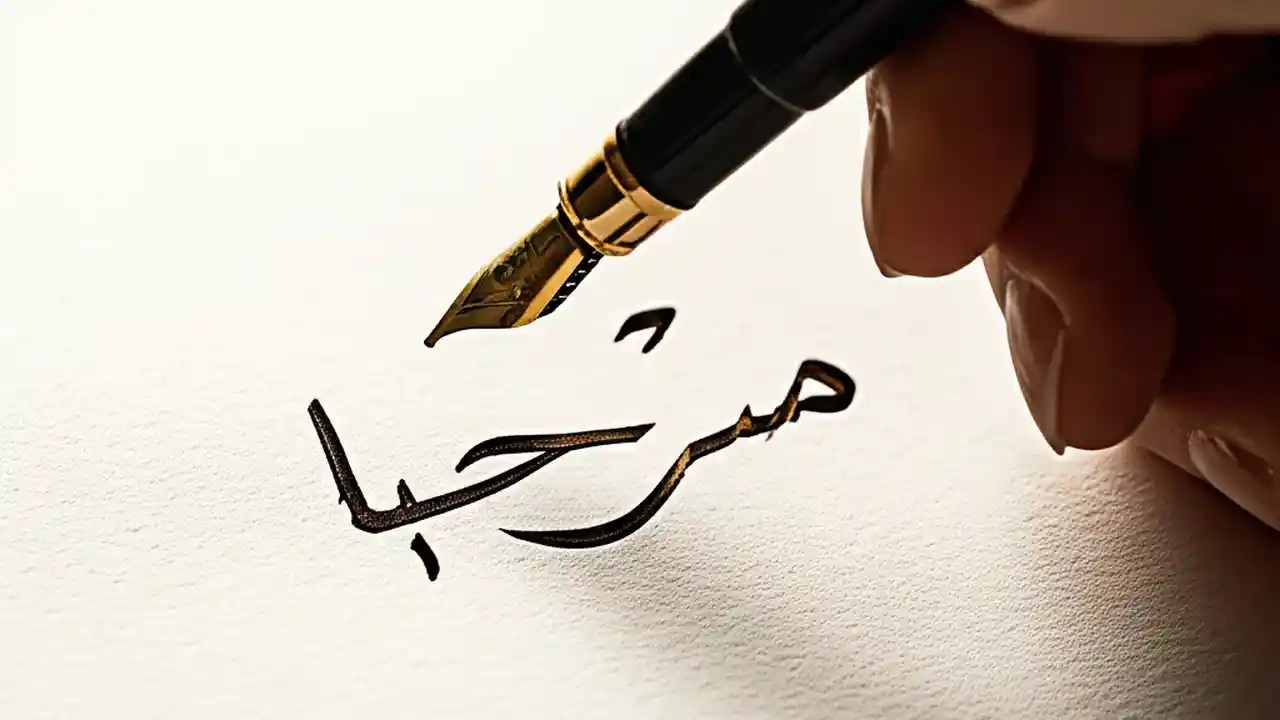 مرحبا